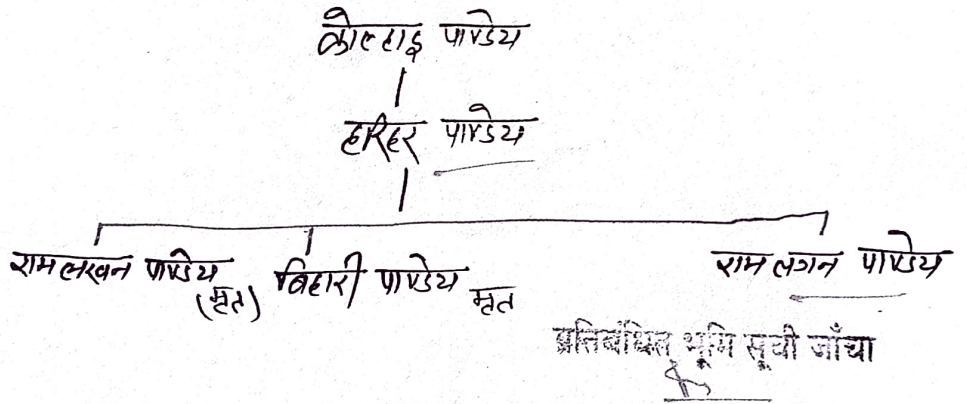 कोल्हाइ पाण्डेय
हरिहर पाण्डेय
रामलखन पाण्डेय (मृत) बिहारी पाण्डेय मृत रामलगन पाण्डेय
प्रतिबंधित भूमि सूची जाँचा